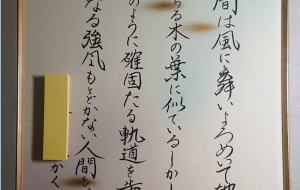 間は風に舞いよろめいて地
ちる木の葉に似ているしかし
のように確固たる軌道を歩
なる強風もとどかない人間
かく